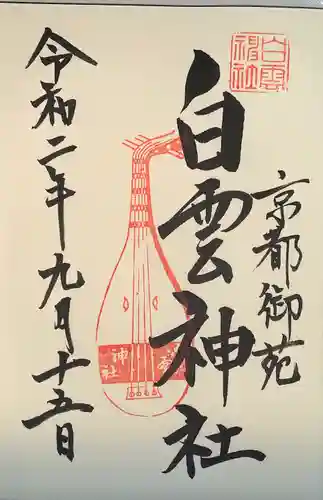 白雲神社
京都御苑
白雲神社
令和二年九月十五日
神社